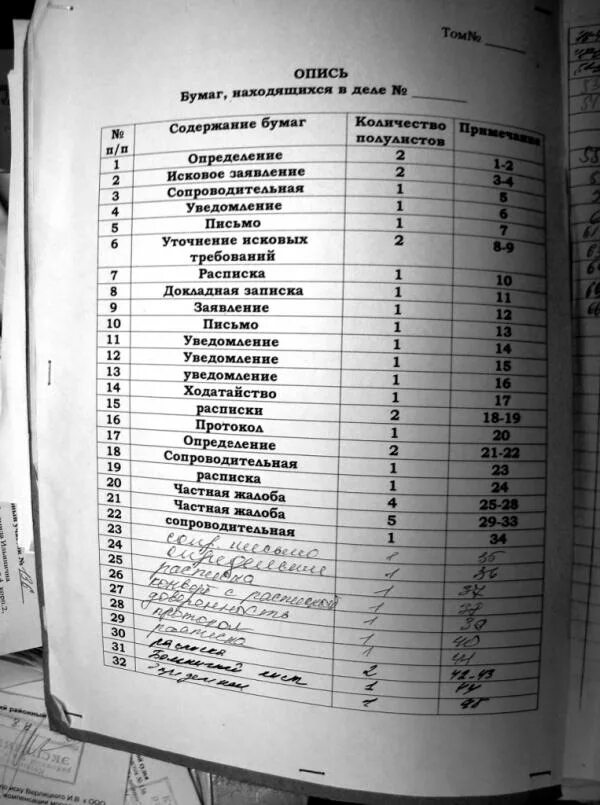 Том№ ______
ОПИСЬ
Бумаг, находящихся в деле № ________
№ п/п Содержание бумаг Количество полулистов Примечание
1 Определение 2 1-2
2 Исковое заявление 2 3-4
3 Сопроводительная 1 5
4 Уведомление 1 6
5 Письмо 1 7
6 Уточнение исковых 2 8-9
требований
7 Расписка 1 10
8 Докладная записка 1 11
9 Заявление 1 12
10 Письмо 1 13
11 Уведомление 1 14
12 Уведомление 1 15
13 уведомление 1 16
14 Ходатайство 1 17
15 расписки 2 18-19
16 Протокол 1 20
17 Определение 2 21-22
18 Сопроводительная 1 23
19 расписка 1 24
20 Частная жалоба 4 25-28
21 Частная жалоба 5 29-33
22 сопроводительная 1 34
23 сопр письмо 1 35
24 определение 36
25 расписка 1 37
26 конверт с распиской 1 38
27 доверенность 1 39
28 протокол 1 40
29 расписка 1 41
30 расписка 2 42-43
31 Больничный лист 1 44
32 1 45